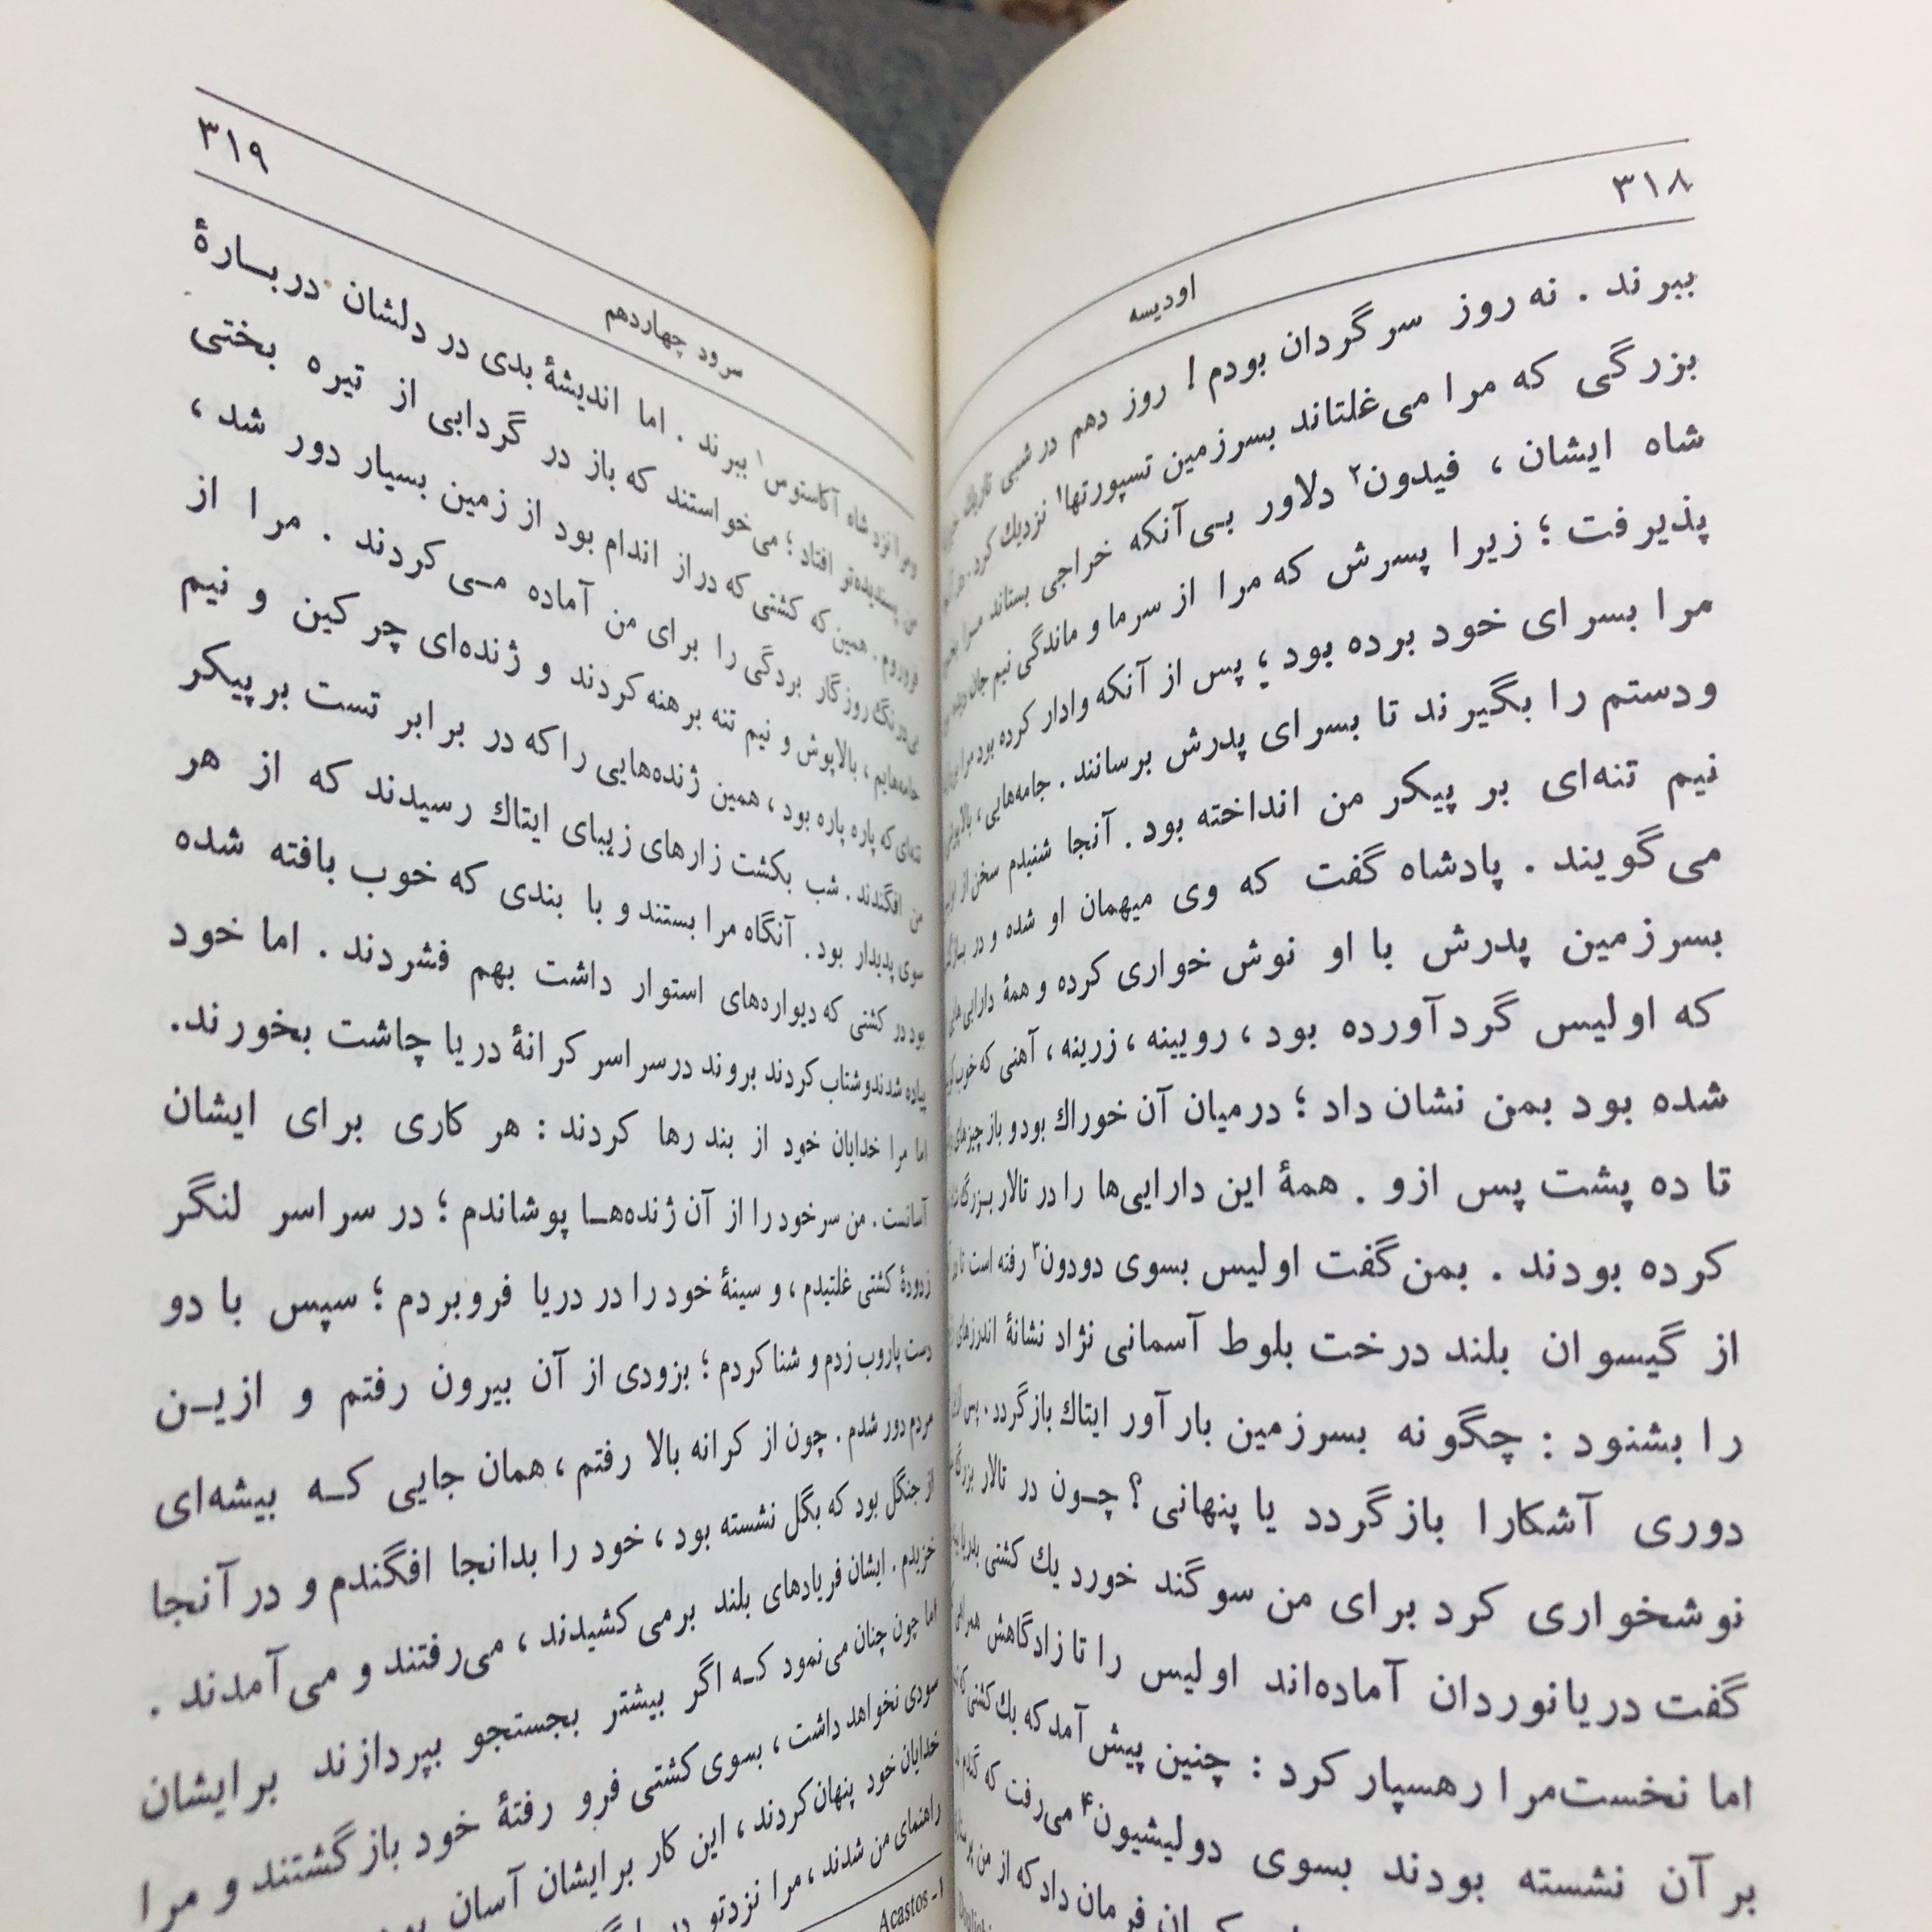 ۳۱۸
اودیسه
ببرند . نه روز سرگردان بودم ! روز دهم در شبی تاریك
بزرگی که مرا می‌غلتاند بسرزمین تسپورتها۱ نزدیك کرد .
شاه ایشان ، فیدون۲ دلاور بی‌آنکه خراجی بستاند مرا
پذیرفت ؛ زیرا پسرش که مرا از سرما و ماندگی نیم جان دیده
مرا بسرای خود برده بود ؛ پس از آنکه وادار کرده بود مرا
ودستم را بگیرند تا بسرای پدرش برسانند . جامه‌هایی ، بالاپوش
نیم تنه‌ای بر پیکر من انداخته بود . آنجا شنیدم سخن از
می‌گویند . پادشاه گفت که وی میهمان او شده و در
بسرزمین پدرش با او نوش خواری کرده و همهٔ دارایی‌هایی
که اولیس گردآورده بود ، رویینه ، زرینه ، آهنی که خوب
شده بود بمن نشان داد ؛ درمیان آن خوراك بود و باز چیزهای
تا ده پشت پس ازو . همهٔ این دارایی‌ها را در تالار بزرگ
کرده بودند . بمن گفت اولیس بسوی دودون۳ رفته است تا
از گیسوان بلند درخت بلوط آسمانی نژاد نشانهٔ اندرزهای
را بشنود : چگونه بسرزمین بارآور ایتاك بازگردد ، پس از
دوری آشکارا بازگردد یا پنهانی ؟ چون در تالار بزرگ
نوشخواری کرد برای من سوگند خورد یك کشتی بدریا
گفت دریانوردان آماده‌اند اولیس را تا زادگاهش
اما نخست‌مرا رهسپار کرد : چنین پیش آمد که یك کشتی که
بر آن نشسته بودند بسوی دولیشیون۴ می‌رفت که گندم
فرمان داد که از من
۳۱۹
سرود چهاردهم
نزد شاه آکاستوس۱ ببرند . اما اندیشهٔ بدی در دلشان دربارهٔ
من پسندیده‌تر افتاد ؛ می‌خواستند که باز در گردابی از تیره بختی
فروروم . همین که کشتی که دراز اندام بود از زمین بسیار دور شد ،
بی‌درنگ روزگار بردگی را برای من آماده می‌کردند . مرا از
جامه‌هایم ، بالاپوش و نیم تنه برهنه کردند و ژنده‌ای چرکین و نیم
تنه‌ای که پاره پاره بود ، همین ژنده‌هایی را که در برابر تست برپیکر
من افگندند . شب بکشت زارهای زیبای ایتاك رسیدند که از هر
سوی پدیدار بود . آنگاه مرا بستند و با بندی که خوب بافته شده
بود در کشتی که دیواره‌های استوار داشت بهم فشردند . اما خود
پیاده شدند و شتاب کردند بروند درسراسر کرانهٔ دریا چاشت بخورند.
اما مرا خدایان خود از بند رها کردند : هر کاری برای ایشان
آسانست . من سرخود را از آن ژنده‌ها پوشاندم ؛ در سراسر لنگر
زدودهٔ کشتی غلتیدم ، و سینهٔ خود را در دریا فروبردم ؛ سپس با دو
دست پاروب زدم و شنا کردم ؛ بزودی از آن بیرون رفتم و ازین
مردم دور شدم . چون از کرانه بالا رفتم ، همان جایی که بیشه‌ای
از جنگل بود که بگل نشسته بود ، خود را بدانجا افگندم و درآنجا
خزیدم . ایشان فریادهای بلند برمی‌کشیدند ، می‌رفتند و می‌آمدند .
اما چون چنان می‌نمود که اگر بیشتر بجستجو بپردازند برایشان
سودی نخواهد داشت ، بسوی کشتی فرو رفتهٔ خود بازگشتند و مرا
خدایان خود پنهان کردند ، این کار برایشان آسان
راهنمای من شدند ، مرا نزدتو
۱- Acastos